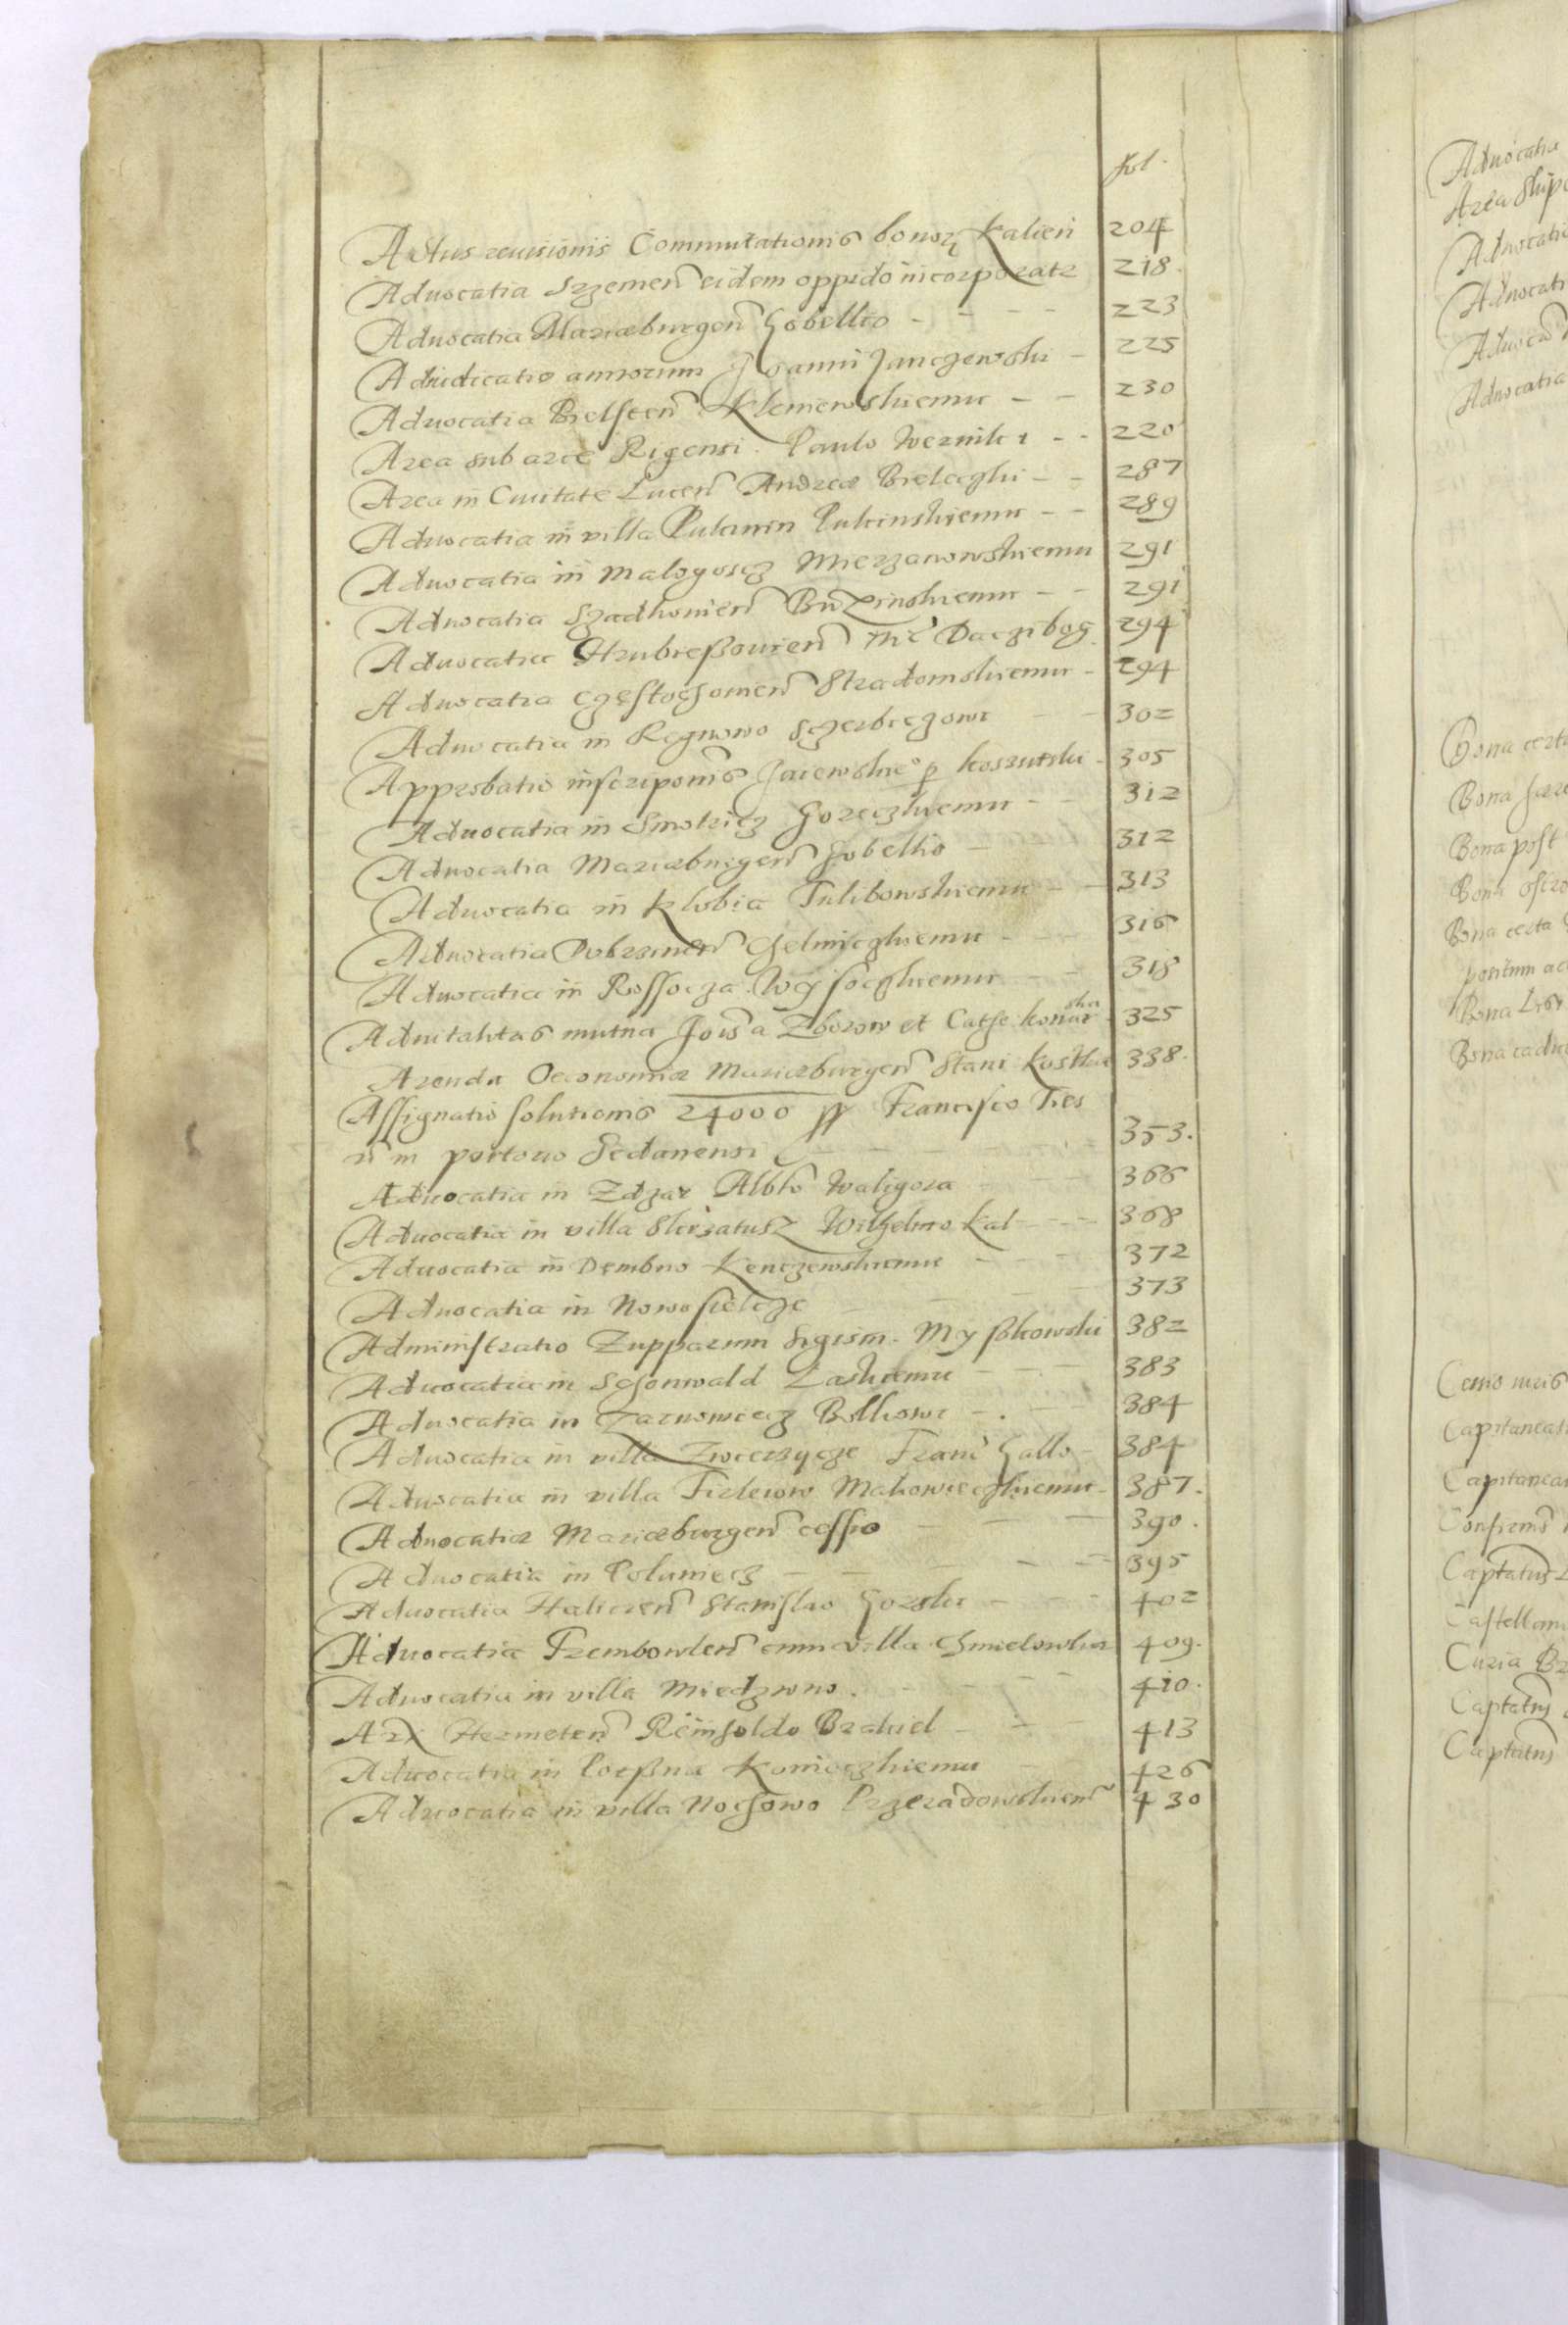 fol.
Actus reuisionis Commutationis bonorum Kalien 204
Aduocatia Srzemen̄ eidem oppido incorporatr 218.
Aduocatia Mariæburgen̄ Gobellio - - - - 223
Adiudicatio annorum Joanni Janczewski - 225
Aduocatia Bielscen̄ Kleniewskiemu - - 230
Area sub arce Rigensi. Paulo Wernike - - 220
Area in Ciuitate Lucen̄ Andreæ Bieleczki - - 287
Aduocatia in villa Pulcinin Pulcinskiemu - - 289
Aduocatia in Malogoscz Mierzanowskiemu 291
Aduocatia Szadkouien̄ Buzinskiemu - - 291
Aduocatia Hrubiessouien̄ Nic̄ Daczibog 294
Aduocatia Częstochouien̄ Stradomskiemu - 294
Aduocatia in Regnowo Sczerbiczowi - - 302
Approbatio inscriponis Jaiewskie° p Koszutski - 305
Aduocatia in Smotricz Goreczkiemu - - 312
Aduocatia Mariæburgen̄ Gobellio - 312
Aduocatia in Klobia Tulibowskiemu - - 313
Aduocatia Dobrzinen̄ Chelmiczkiemu - - - 316
Aduocatia in Rossocza Wysoczkiemu - - 318
Aduitalitas mutua Jois a Zborow et Cathe Konarska 325
Arenda Oeconomiæ Mariæburgen̄ Stani Kostka 338.
Assignatio solutionis 24000 ff Francisco Tres
n in portorio Gedanensi - - - 353.
Aduocatia in Zdzar Alb̄to Waligora - - - 366
Aduocatia in villa Skrzatusz Wilhelmo Kal - - - 368
Aduocatia in Dembno Kenczewskiemu - - - 372
Aduocatia in Nowosielcze - - - 373
Administratio Zupparum Sigism. Myszkowski 382
Aduocatia in Schonwald Laskiemu - - - 383
Aduocatia in Zarnowiecz Bolkowi - . - 384
Aduocatia in villa Zwierzycze Franc̄ Gallo - 384
Aduocatia in villa Fideiow Makowieczkiemu - 387.
Aduocatiæ Mariæburgen̄ cessio - - - 390.
Aduocatia in Polaniecz - - - - 395
Aduocatia Halicien̄ Stanislao Gorski - - - 402
Aduocatia Trembowlen̄ cum villa Chmielowka 409.
Aduocatia in villa Miedzwno. - - - 410.
Arx Hermeten̄ Reinholdo Brakiel - - 413
Aduocatia in Konieczkiemu - 426
Aduocatia in villa Nochowo Przeradowskiem̄ 430
Aduocatia
Area Slup
Aduocatia
Aduocati
Aduoca
Aduocatia
Bona certa
Bona
Bona post
Bona
Bona certa
Bona
Bona caduc
Capitaneat
Capitanea
Captatus
Castellan
Curia
Captatus
Captatus